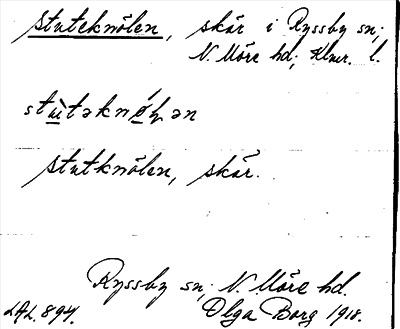 Stuteknölen, skär i Ryssby sn;
N. Möre hd; Klmr. l.
Stutknölen, skär.
Ryssby sn, N. Möre hd.
LAL 894. Olga Borg 1918.